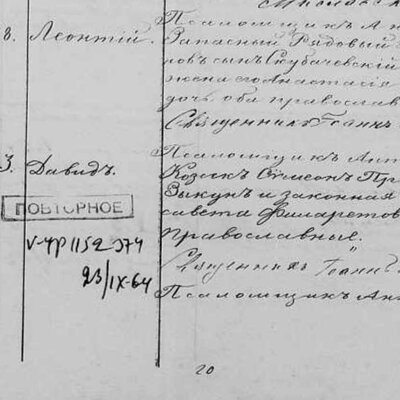 8. Леонтій.
Псаломщикъ Ан
Запасный Рядовый
новъ сынъ Скубачевскій
жена его Анастасія
дочь оба православ
Священникъ Іоаннъ
3. Давидъ.
Псаломщикъ Ант
Козакъ Сѵмеонъ Пр
Зыкунъ и законная
савета Филаретов
православные.
Священникъ Іоаннъ
Псаломщикъ Ан
ПОВТОРНОЕ
V-УР 1152374
23/IX-64
20